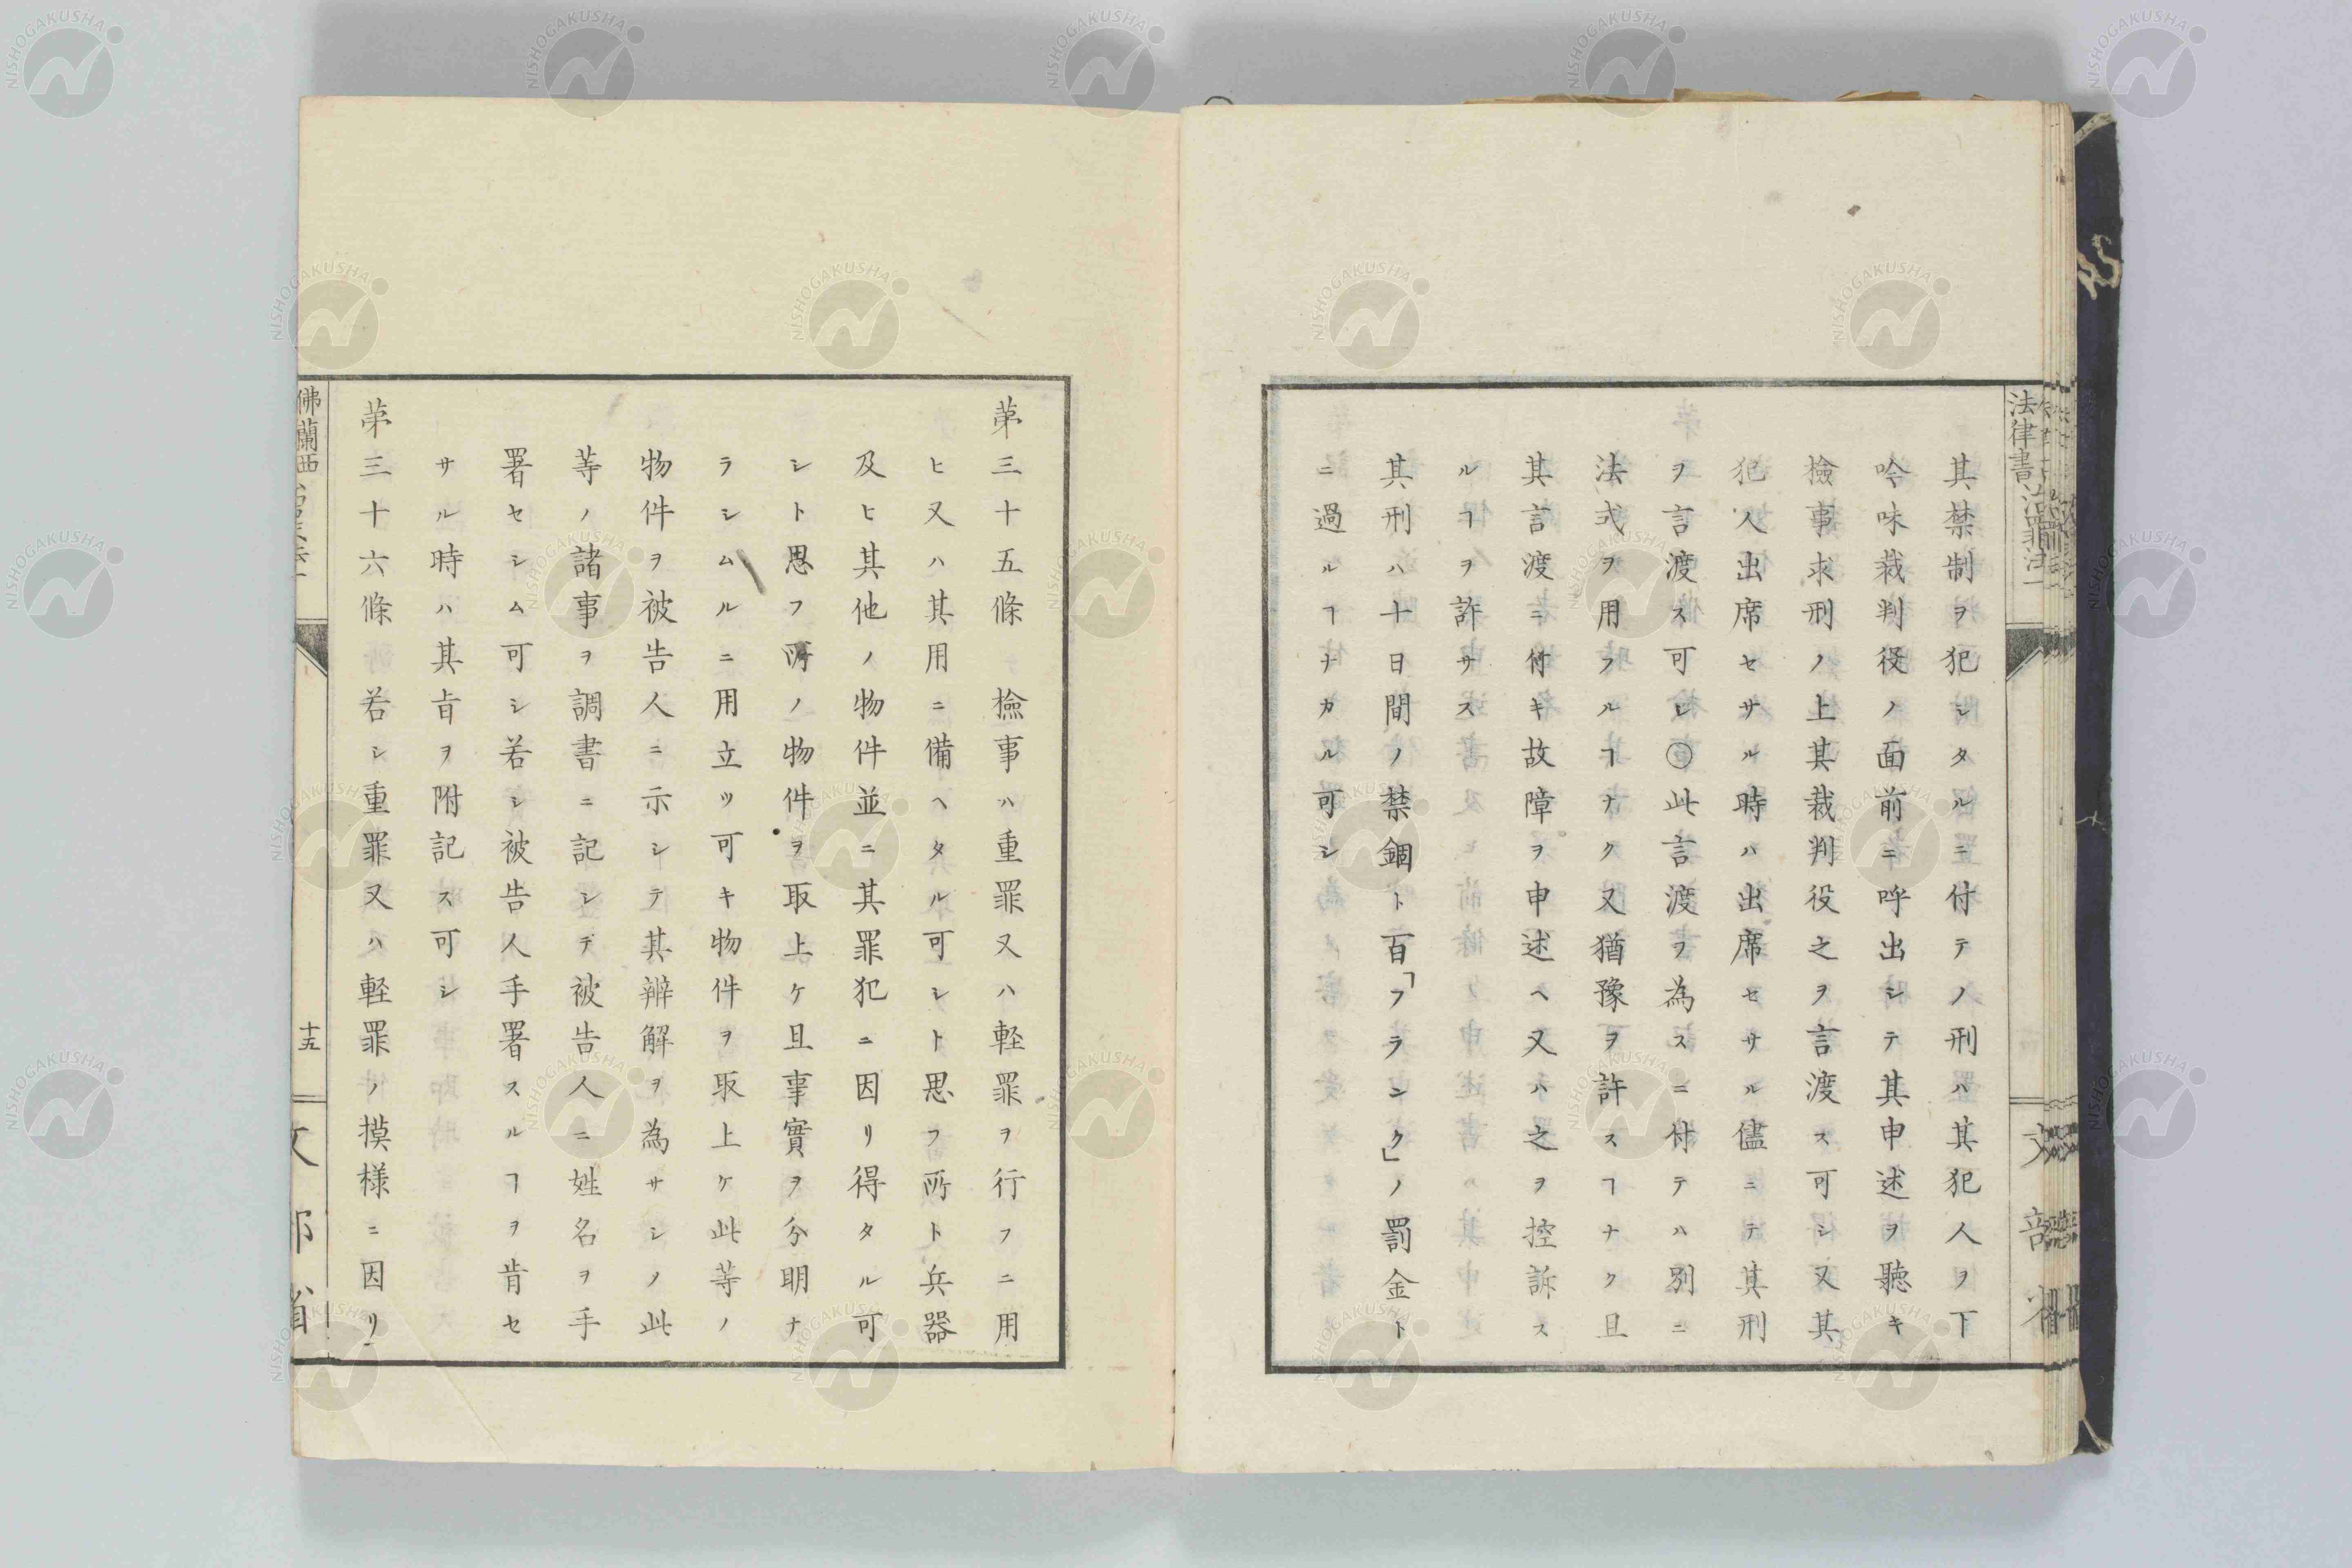 法律書 治罪法一
其禁制ヲ犯シタルニ付テノ刑ハ其犯人ヲ下
吟味裁判役ノ面前ニ呼出シテ其申述ヲ聽キ
檢事求刑ノ上其裁判役之ヲ言渡ス可シ又其
犯人出席セサル時ハ出席セサル儘ニテ其刑
ヲ言渡ス可シ〇此言渡ヲ為スニ付テハ別ニ
法式ヲ用フルヿナク又猶豫ヲ許スヿナク且
其言渡ニ付キ故障ヲ申述ヘ又ハ之ヲ控訴ス
ルヿヲ許サス
其刑ハ十日間ノ禁錮ト百「フランク」ノ罰金ト
ニ過ルヿナカル可シ
苐三十五條 檢事ハ重罪又ハ軽罪ヲ行フニ用
ヒ又ハ其用ニ備ヘタル可シト思フ所ト兵器
及ヒ其他ノ物件並ニ其罪犯ニ因リ得タル可
シト思フ所ノ物件ヲ取上ケ且事實ヲ分明ナ
ラシムルニ用立ツ可キ物件ヲ取上ケ此等ノ
物件ヲ被告人ニ示シテ其辨解ヲ為サシノ此
等ノ諸事ヲ調書ニ記シテ被告人ニ姓名ヲ手
署セシム可シ若シ被告人手署スルヿヲ肯セ
サル時ハ其旨ヲ附記ス可シ
苐三十六條 若シ重罪又ハ軽罪ノ摸様ニ因リ
佛蘭西
十五
文部省
NISHOGAKUSHA